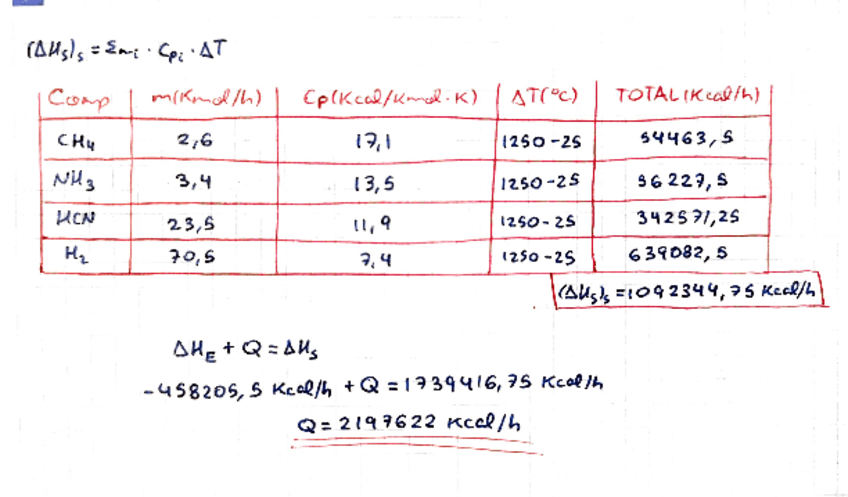 (ΔHs)s = Σmi · Cpi · ΔT
Comp m(Kmol/h) Cp(Kcal/Kmol·K) ΔT(°C) TOTAL(Kcal/h)
CH4 2,6 17,1 1250-25 54463,5
NH3 3,4 13,5 1250-25 56227,5
HCN 23,5 11,9 1250-25 342571,25
H2 70,5 7,4 1250-25 639082,5
(ΔHs)s = 1092344,75 Kcal/h
ΔHE + Q = ΔHs
-458205,5 Kcal/h + Q = 1739416,75 Kcal/h
Q = 2197622 Kcal/h